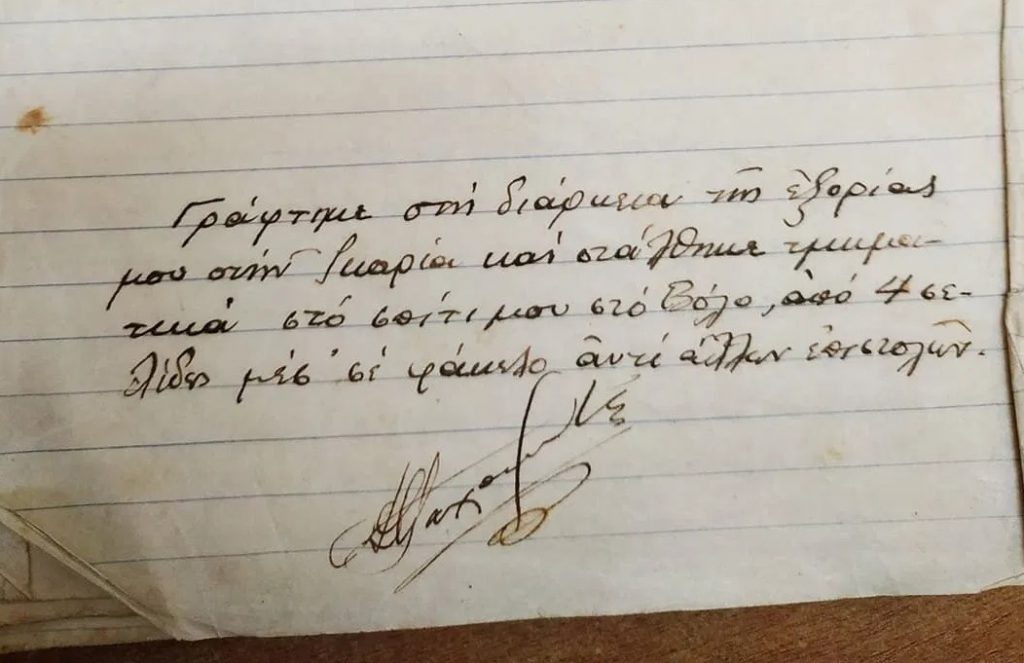 Γράφτηκε στή διάρκεια τῆς ἐξορίας
μου στήν Ἰκαρία καί στάλθηκε τμημα-
τικά στό σπίτι μου στό Βόλο, ἀπό 4 σε-
λίδες μέσ' σέ φάκελο ἀντί ἄλλων ἐπιστολῶν.